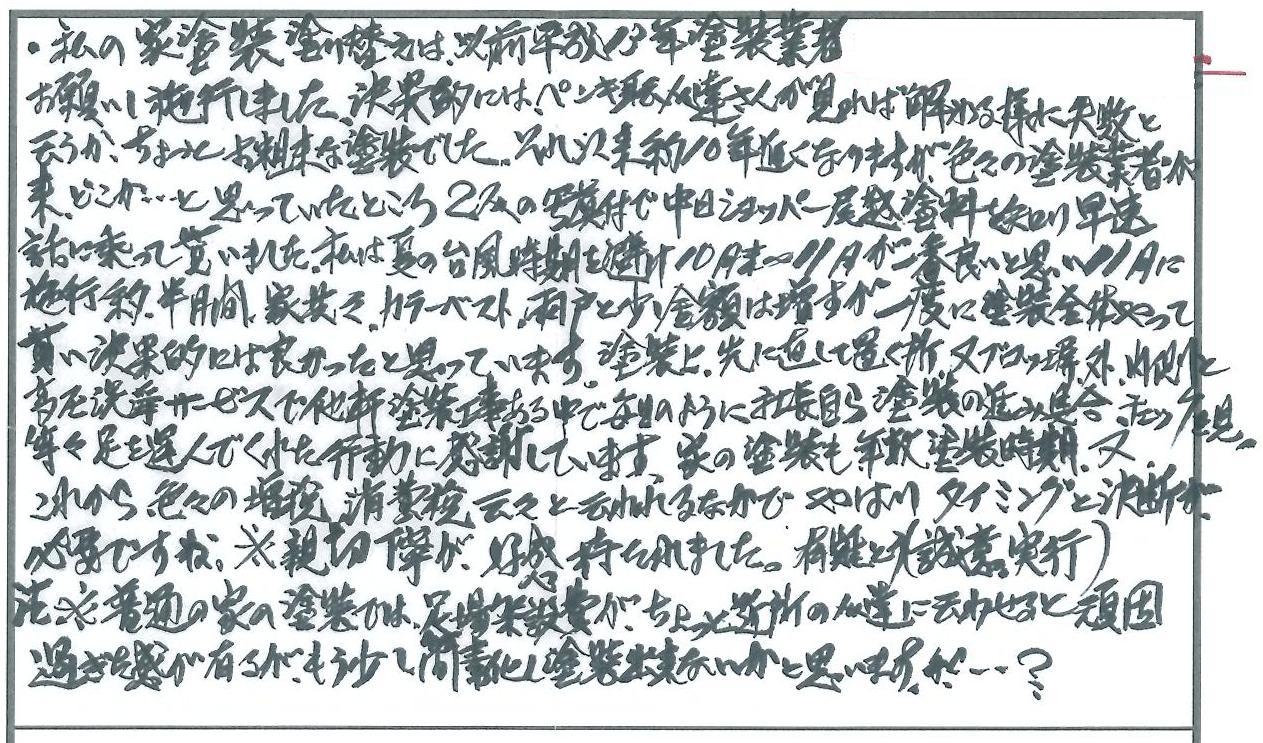 ・私の家塗装塗り替えは、以前平成13年塗装業者
お願いし施行しました。決果的には、ペンキ職人達さんが見れば解わる様に失敗と
云うか、ちょっとお粗末な塗装でした。それ以来約10年近くなりますが、色々の塗装業者が
来、どこか…と思っていたところ2人の写真付で中日ショッパー尾越塗料を知り早速
話に乗って貰いました。私は夏の台風時期を避け10月末〜11月が一番良いと思い11月に
施行約半月間、家共々、カラーベスト、雨戸と少し金額は増すが一度に塗装全体やって
貰い決果的には良かったと思っています。塗装上、先に直して置く所、又ブロック塀、外、内側と
高圧洗浄サービスで他軒塗装工事ある中で毎日のように社長自ら塗装の進み具合チェックを見、
等々足を運んでくれた行動に感謝しています。家の塗装も年数、塗装時期、又、
これから色々の増税、消費税云々と云われるなかで、やはりタイミングと決断が、
必要ですね。※親切丁寧が、好感持たれました。有難とう(誠意、実行)
注※普通の家の塗装では、足場架設費が、ちょっと近所の人達に云わせると頑固
過ぎた感が有るが、もう少し簡素化し塗装出来ないかと思いますが…?